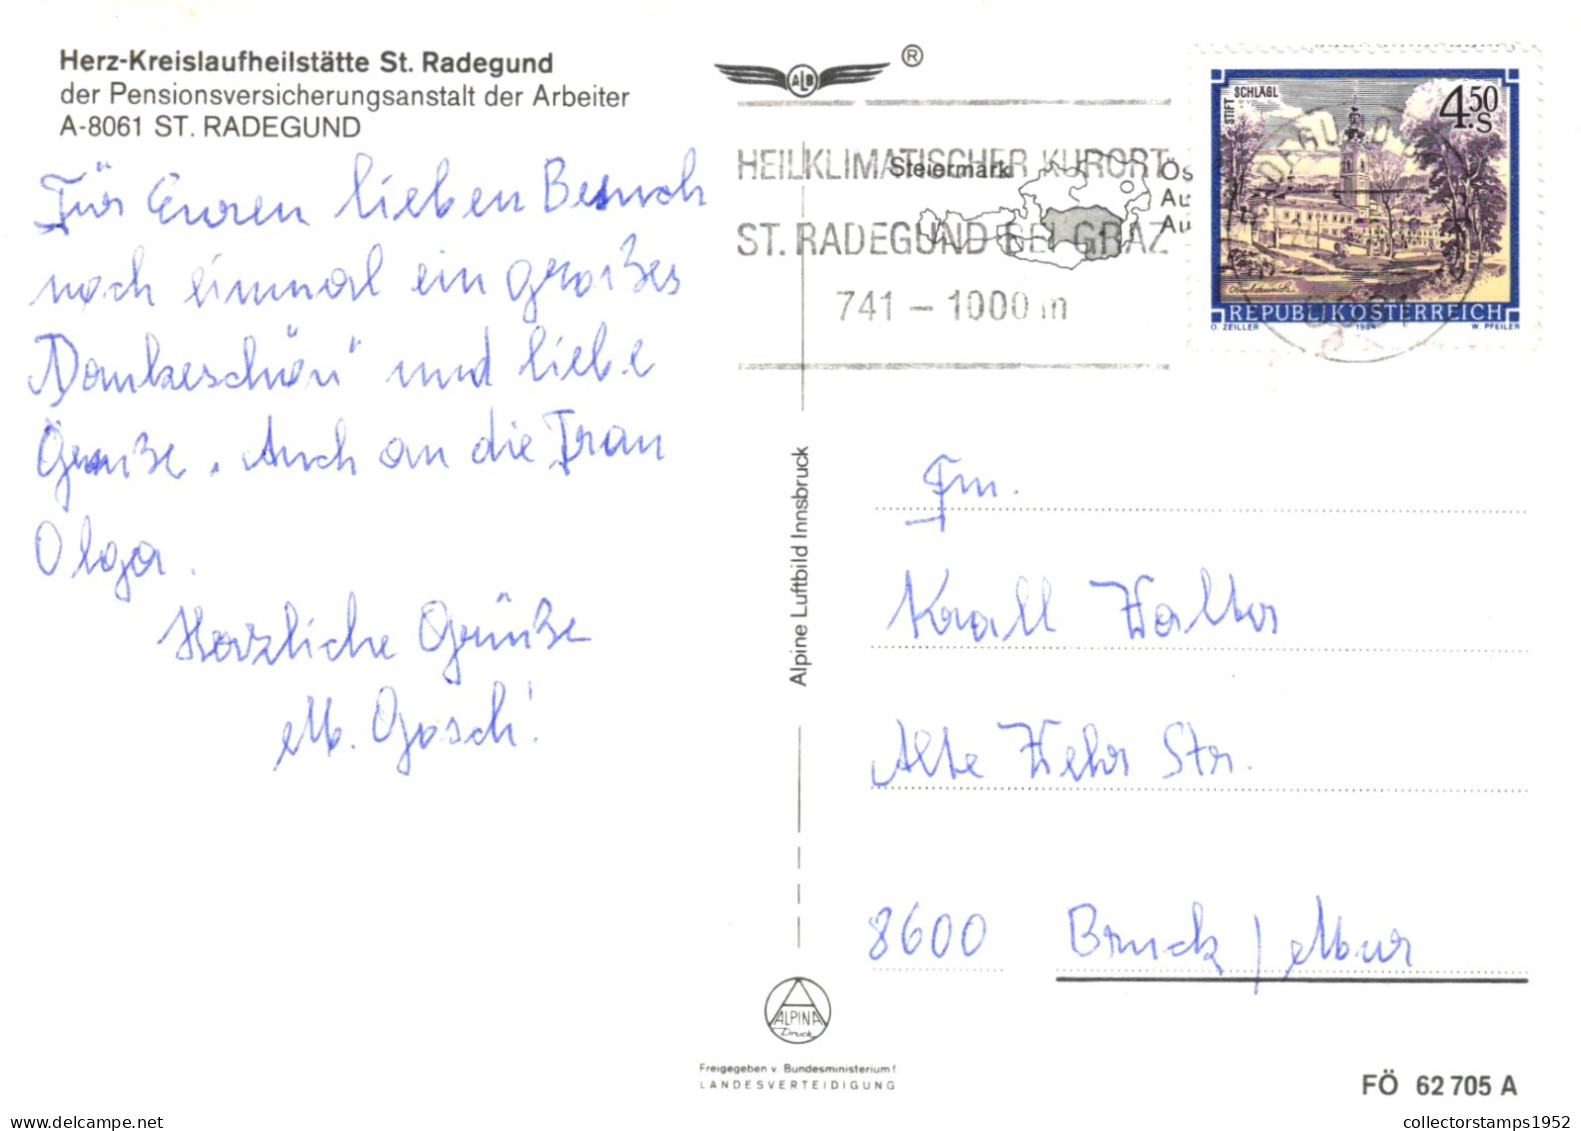 Herz-Kreislaufheilstätte St. Radegund
der Pensionsversicherungsanstalt der Arbeiter
A-8061 ST. RADEGUND
Für Euren lieben Besuch
noch einmal ein großes
"Dankeschön" und liebe
Grüße. Auch an die Frau
Olga.
Herzliche Grüße
M. Gosch!
ALB ®
HEILKLIMATISCHER KURORT
ST. RADEGUND BEI GRAZ
741 - 1000 m
Steiermark
Ös
Au
STIFT SCHLÄGL
4.50
S
REPUBLIK ÖSTERREICH
O. ZEILLER 1984 W. PFEILER
Alpine Luftbild Innsbruck
Fm.
Krall Walter
Alte Wehr Str.
8600 Bruck / Mur
ALPINA
Druck
Freigegeben v. Bundesministerium f
LANDESVERTEIDIGUNG
FÖ 62 705 A
collectorstamps1952